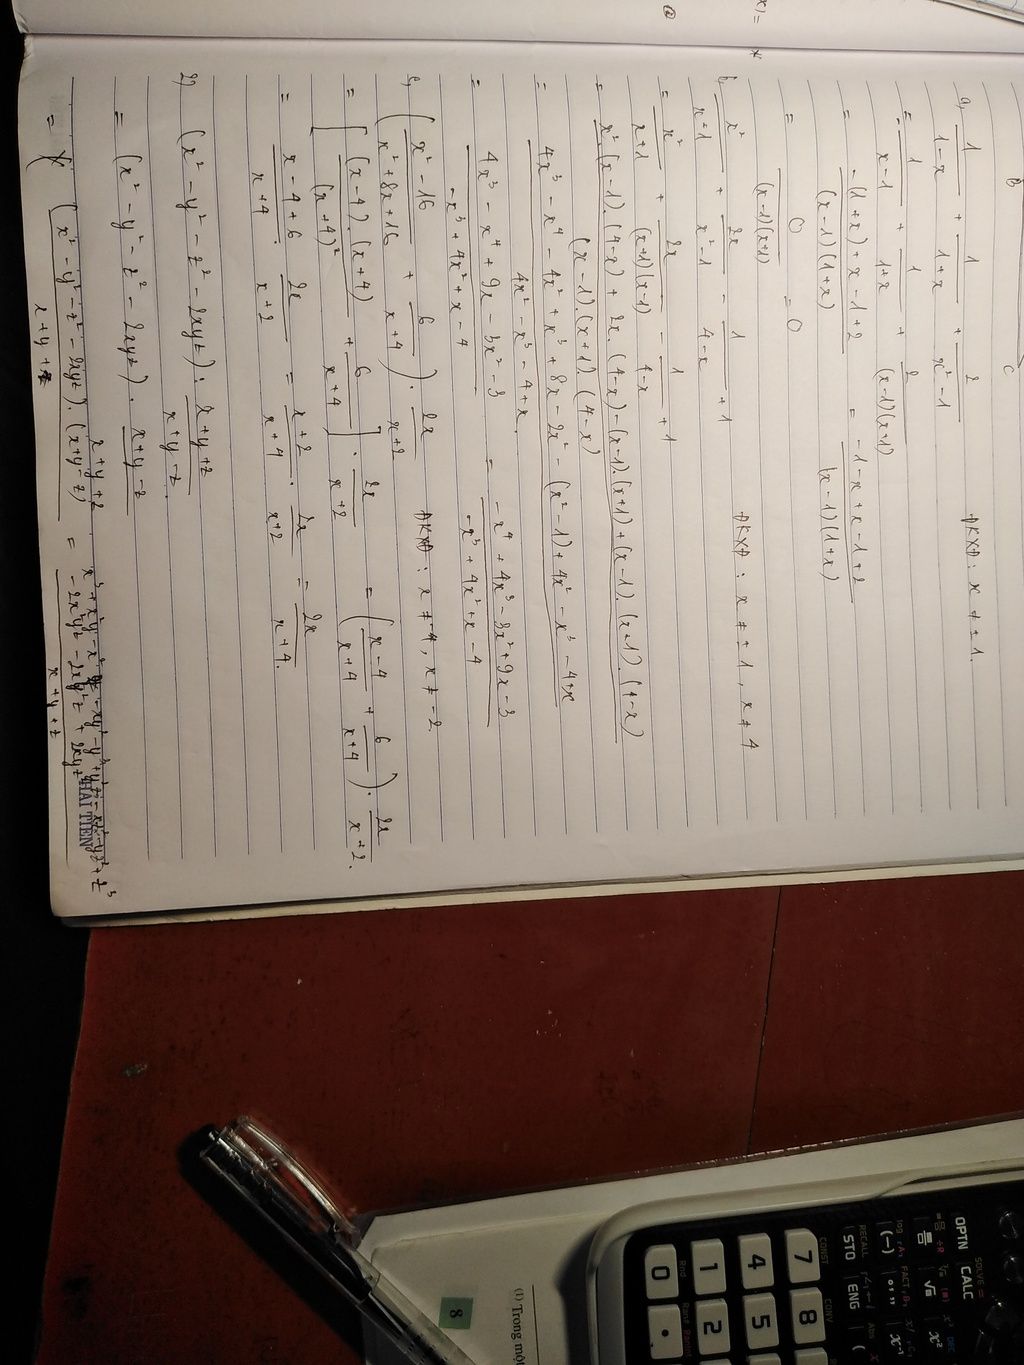 B
C
a, 1/(1-x) + 1/(1+x) + 2/(x²-1) ĐKXĐ: x ≠ ±1.
= -1/(x-1) + 1/(1+x) + 2/((x-1)(x+1))
= (-(1+x)+x-1+2)/((x-1)(1+x)) = (-1-x+x-1+2)/((x-1)(1+x))
= 0/((x-1)(x+1)) = 0
b, x²/(x+1) + 2x/(x²-1) - 1/(4-x) + 1 ĐKXĐ: x ≠ ±1, x ≠ 4
= x²/(x+1) + 2x/((x+1)(x-1)) - 1/(4-x) + 1
= (x².(x-1).(4-x) + 2x.(4-x) - (x-1).(x+1) + (x-1).(x+1).(4-x))/((x-1).(x+1).(4-x))
= (4x³ - x⁴ - 4x² + x³ + 8x - 2x² - (x²-1) + 4x² - x³ - 4+x)/(4x² - x³ - 4+x)
= (4x³ - x⁴ + 9x - 3x² - 3)/(-x³ + 4x² + x - 4) = (-x⁴ + 4x³ - 3x² + 9x - 3)/(-x³ + 4x² + x - 4)
c, ((x²-16)/(x²+8x+16) + 6/(x+4)) . 2x/(x+2) ĐKXĐ: x ≠ -4, x ≠ -2
= [((x-4).(x+4))/(x+4)² + 6/(x+4)] . 2x/(x+2) = ((x-4)/(x+4) + 6/(x+4)) . 2x/(x+2).
= (x-4+6)/(x+4) . 2x/(x+2) = (x+2)/(x+4) . 2x/(x+2) = 2x/(x+4).
2) (x² - y² - z² - 2xyz) : (x+y+z)/(x+y-z).
= (x² - y² - z² - 2xyz) . (x+y-z)/(x+y+z)
= ((x² - y² - z² - 2xyz).(x+y-z))/(x+y+z) =
HẢI TIẾN
OPTN
CALC
SOLVE =
STO
ENG
RECALL
FACT
CONST
CONV
Abs
7
8
4
5
1
2
0
Rnd
8
(1) Trong một